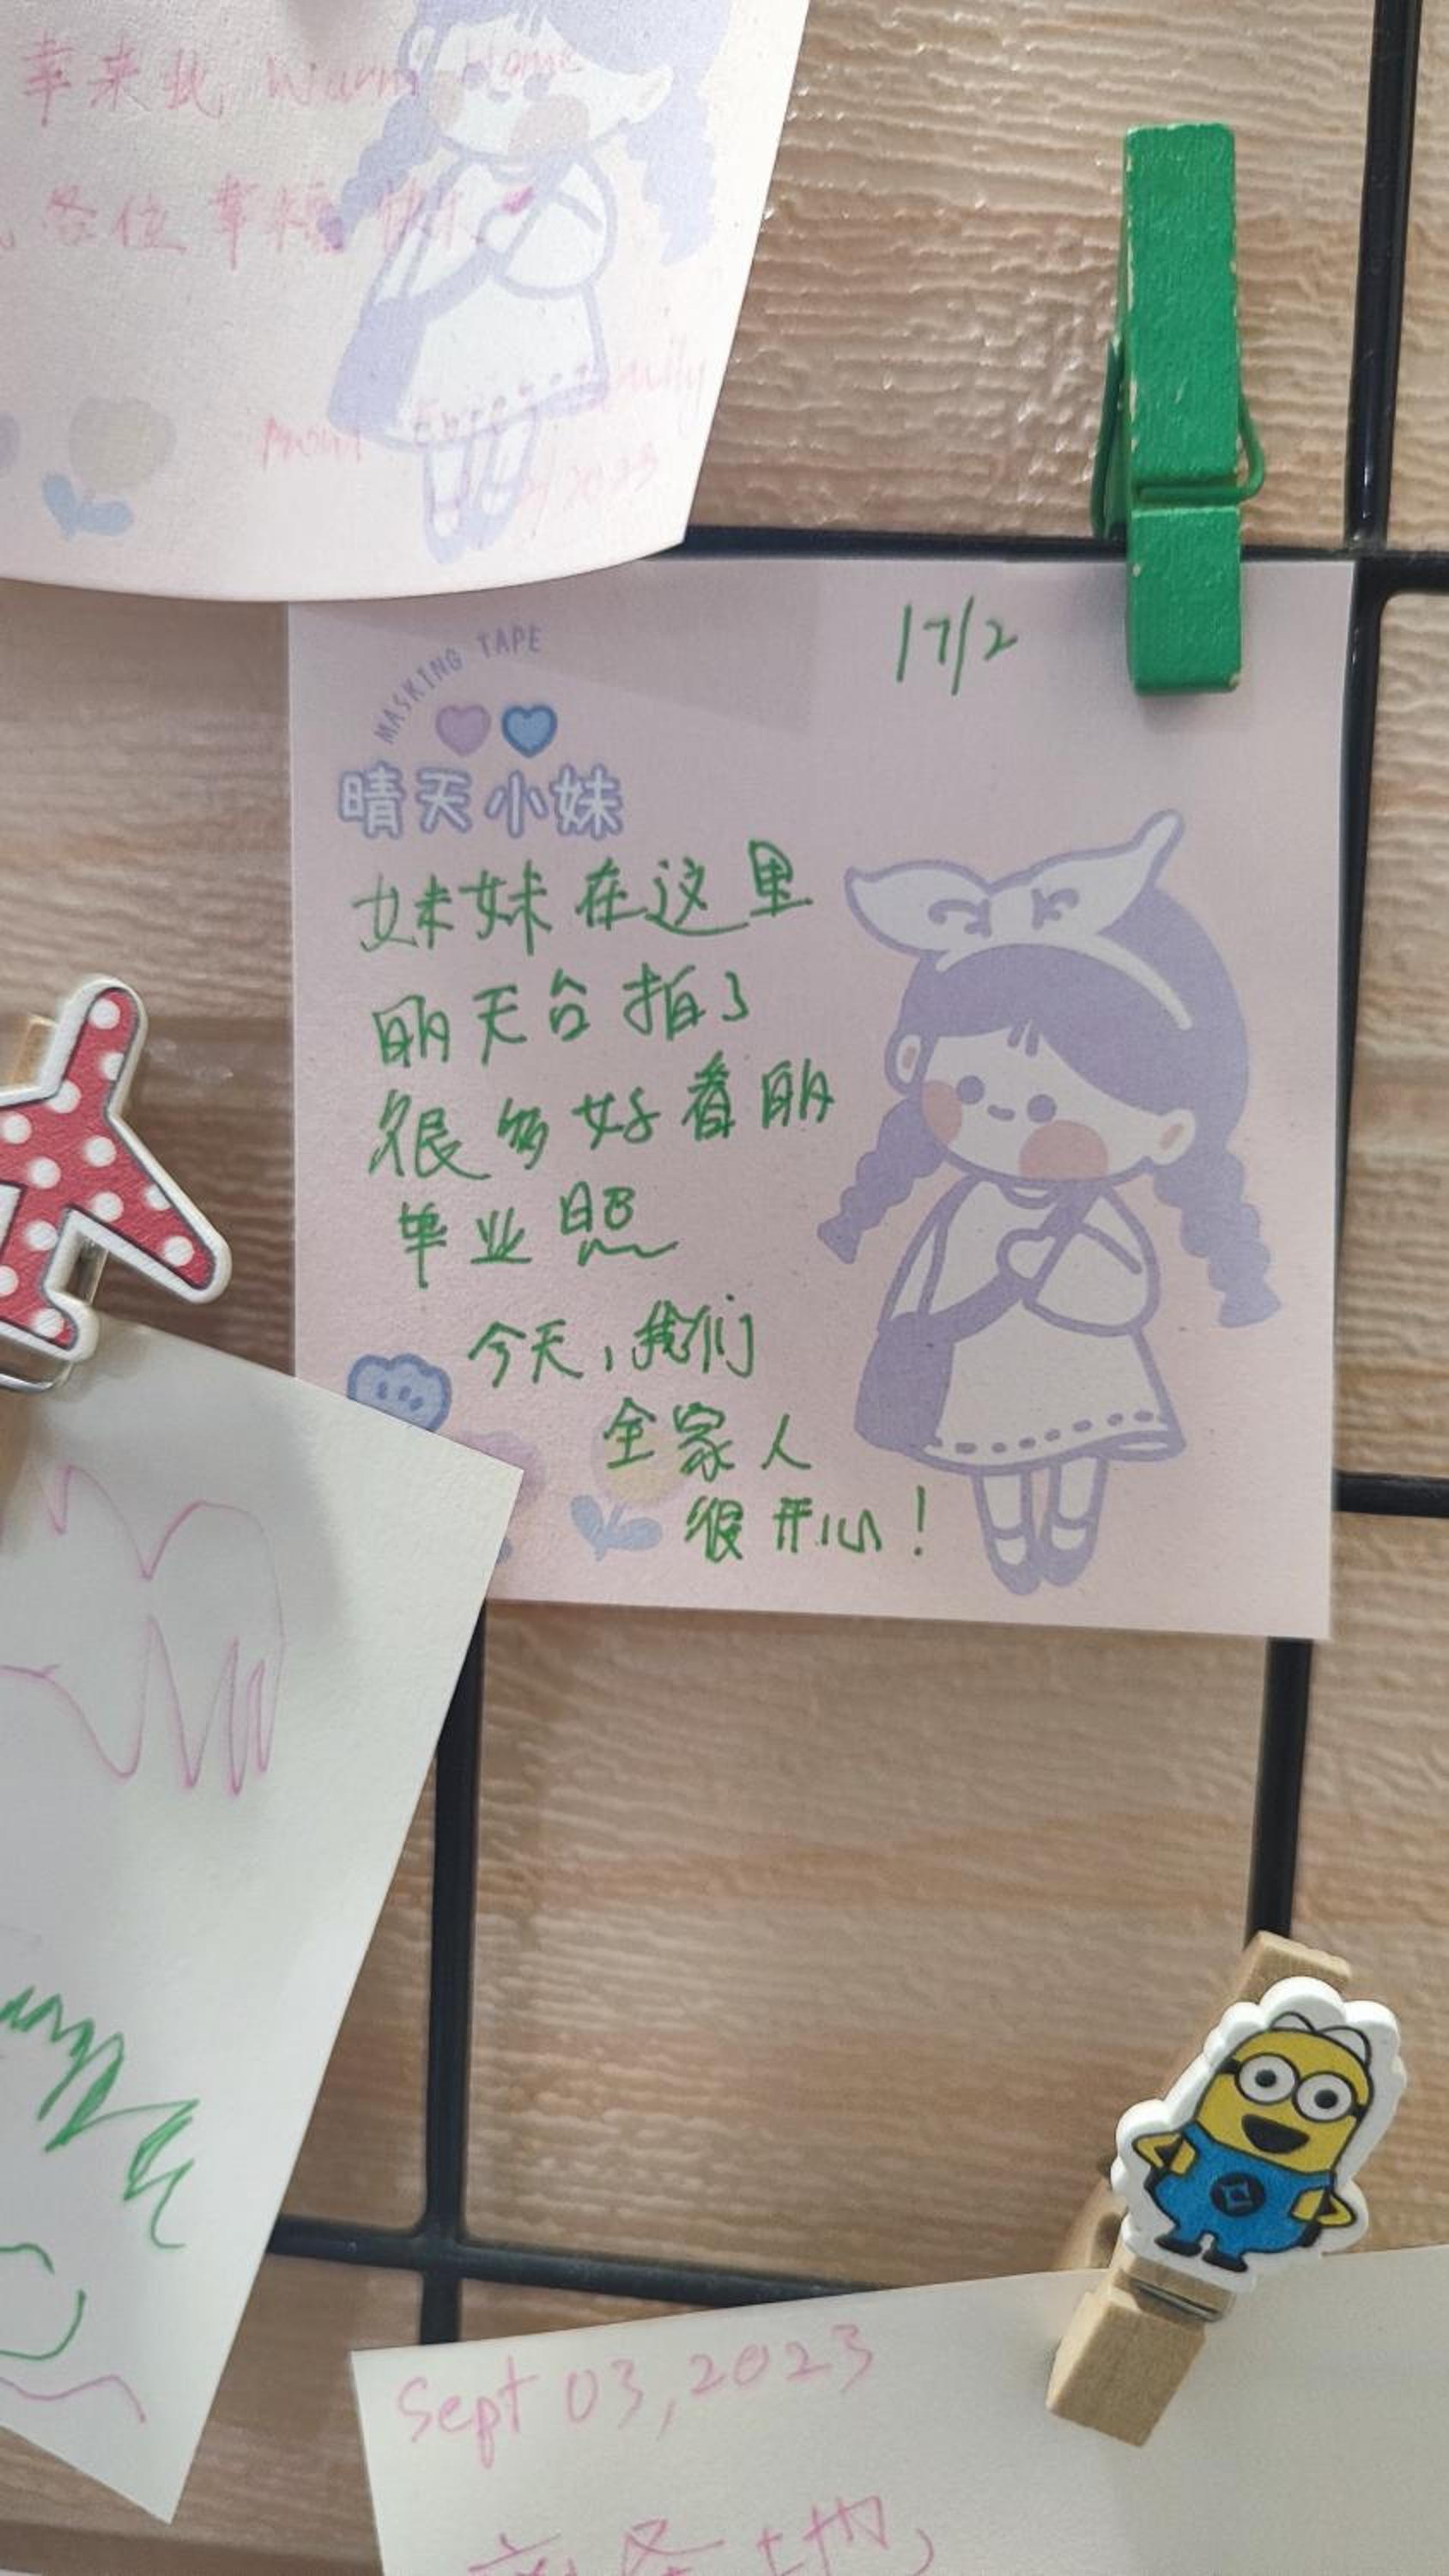 幸来此 Warm Home
各位 幸福 快乐
2023
17/2
MASKING TAPE
晴天小妹
妹妹在这里
明天台拍了
很多好看的
毕业照
今天,我们
全家人
很开心!
Sept 03, 2023